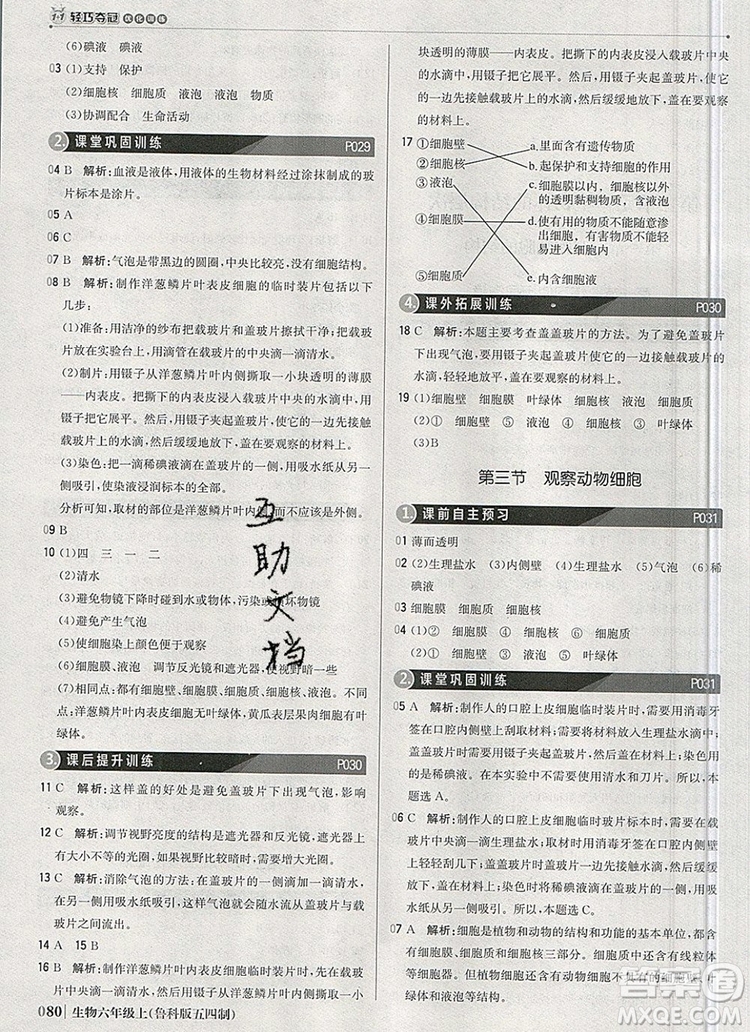 1+1 轻巧夺冠 优化训练
(6)碘液 碘液
03 (1)支持 保护
(2)细胞核 细胞质 液泡 液泡 物质
(3)协调配合 生命活动
2. 课堂巩固训练 P029
04 B 解析:血液是液体,用液体的生物材料经过涂抹制成的玻
片标本是涂片。
05 A
06 C
07 B 解析:气泡是带黑边的圆圈,中央比较亮,没有细胞结构。
08 B 解析:制作洋葱鳞片叶表皮细胞的临时装片包括以下
几步:
(1)准备:用洁净的纱布把载玻片和盖玻片擦拭干净。把载玻
片放在实验台上,用滴管在载玻片的中央滴一滴清水。
(2)制片:用镊子从洋葱鳞片叶内侧撕取一小块透明的薄膜
——内表皮。把撕取的内表皮浸入载玻片中央的水滴中,用
镊子展平。用镊子夹起盖玻片,使它的一边先接触载玻片上
的水滴,然后缓缓地放下,盖在要观察的材料上。
(3)染色:把一滴稀碘液滴在盖玻片的一侧。用吸水纸从另一
侧吸引,使染液浸润标本的全部。
分析可知,取材的部位是洋葱鳞片叶内侧,而不应该是外侧。
09 B
10 (1)四 三 一 二
(2)清水
(3)避免物镜下降时碰到水或物体,污染或损坏物镜
(4)避免产生气泡
(5)使细胞染上颜色便于观察
(6)细胞膜、液泡 调节反光镜和遮光器,使视野暗一些
(7)相同点:都有细胞壁、细胞膜、细胞质、细胞核、液泡。不同
点:洋葱鳞片叶内表皮细胞无叶绿体,黄瓜表层果肉细胞有叶
绿体。
3. 课后提升训练 P030
11 C 解析:这样盖的好处是避免盖玻片下出现气泡,影响
观察。
12 C 解析:调节视野亮度的结构是遮光器和反光镜,遮光器
上有大小不等的光圈,视野比较暗时,需要用较大的光圈。
13 C 解析:消除气泡的方法是在盖玻片的一侧滴加清水,在
相对的另一侧用吸水纸吸引,这样水流会从盖玻片和载
玻片之间流出。
14 A 15 B
16 B 解析:制作洋葱鳞片叶内表皮细胞临时装片时,撕取一小
块透明的薄膜——内表皮。把撕取的内表皮浸入载玻片中央
的水滴中,用镊子展平。用镊子夹起盖玻片,使它的一边先
接触载玻片上的水滴,然后缓缓地放下,盖在要观察的材料上。
17 ①细胞壁 a.里面含有遗传物质
②细胞核 b.起保护和支持细胞的作用
③液泡 c.细胞膜以内、细胞核以外
的透明黏稠物质,含有
液泡、叶绿体等
④细胞膜 d.使有用的物质不能随意渗
出细胞,有害的物质不能轻
易进入细胞内
⑤细胞质 e.内含细胞液
4. 课外拓展训练 P030
18 C 解析:本题主要考查盖盖玻片的方法。为了避免盖玻片
下出现气泡,要用镊子夹起盖玻片使它的一边接触载玻片的
水滴,轻轻地放平,盖在要观察的材料上。
19 (1)①细胞壁 ②细胞膜 ④叶绿体 ⑤细胞核
(2)① 细胞壁 ⑤ 细胞核 液泡 ④ 叶绿体
(3)B
第三节 观察动物细胞
1. 课前自主预习 P031
01 薄而透明
02 (1)生理盐水 (2)内侧壁 (4)生理盐水 (5)气泡 (6)稀
碘液
03 细胞膜 细胞核 细胞质
04 (1)② 细胞膜 ④ 细胞质 ⑤ 细胞核
(2)① 细胞壁 ③ 液泡 ⑥ 叶绿体
2. 课堂巩固训练 P031
05 A 解析:制作人的口腔上皮细胞临时装片时,应用消毒牙
签在口腔内侧壁上刮取材料,不需要用到镊子,需要在载玻片
上滴加生理盐水,因此不需要使用清水和刀片。故
本题选A。
06 C 解析:制作人的口腔上皮细胞临时装片时,首先在载玻
片中央滴一滴生理盐水,然后用消毒牙签在口腔内侧壁
上轻轻刮几下,然后放在载玻片的生理盐水中涂抹几下,盖
上盖玻片;染色时将稀碘液滴在盖玻片的一侧,另一侧用
吸水纸吸引。故本题选C。
07 A 解析:动植物细胞的结构和功能的基本单位都是
细胞,都有细胞膜、细胞质和细胞核三部分。细胞质中含有线粒体
等细胞器。但植物细胞还含有动物细胞不具有的细胞壁、
互助文档
080 生物六年级上(鲁科版五四制)